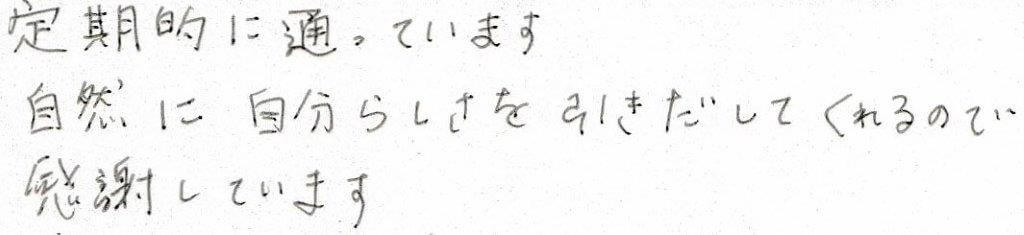 定期的に通っています
自然に自分らしさを引きだしてくれるので
感謝しています